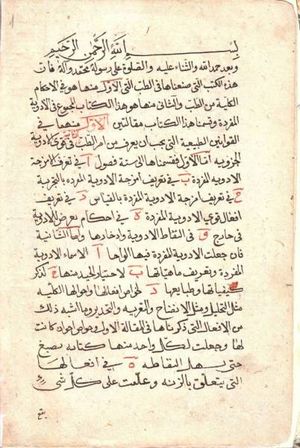 بسم الله الرحمن الرحيم
وبعد حمد الله والثناء عليه والصلوة على رسوله محمد وآله فان
هذه الكتب التي صنعناها في الطب التي الاول منها هو في الاحكام
الكلية من الطب والثاني منها هو هذا الكتاب المجموع في الادوية
المفردة وقسمنا هذا الكتاب مقالتين الاولى منهما في
القوانين الطبيعية التي يجب ان يعرف من امر الطب في قوى الادوية
الجزوية اما الاولى فقسمناها الى ستة فصول ا في تعريف امزجة
الادوية المفردة ب في تعريف امزجة الادوية المفردة بالتجربة
ج في تعريف امزجة الادوية المفردة بالقياس د في تعريف
افعال قوى الادوية المفردة ه في احكام يعرض للادوية
في خارج و في التقاط الادوية وادخارها واما الثانية
فان جعلت الادوية المفردة فيها الواحا ا الاسماء الادوية
المفردة وتعريف ماهياتها ب لاختيار الجيد منها ج لذكر
كيفياتها وطبايعها د لخواص افعالها واحوالها الكلية
مثل التحليل ومثل الانضاج والتغرية والتخدير وما اشبه ذلك
من الافعال التي ذكرناها في المقالة الاولى وخواص اخرى ان كانت
لها وجعلت لكل واحد منها كتابه بصبغ
حتى يسهل التقاطه ه في افعالها
التي يتعلق بالزينة وعلمت على كل شي